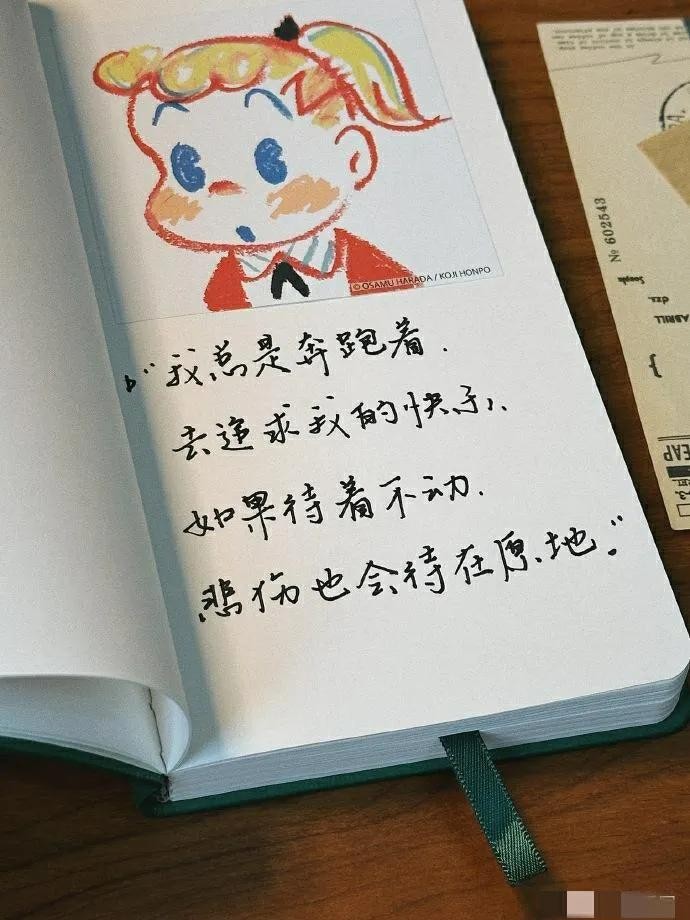 © OSAMU HARADA / KOJI HONPO
“我总是奔跑着.
去追求我的快乐,
如果待着不动.
悲伤也会待在原地.”
№ 602543